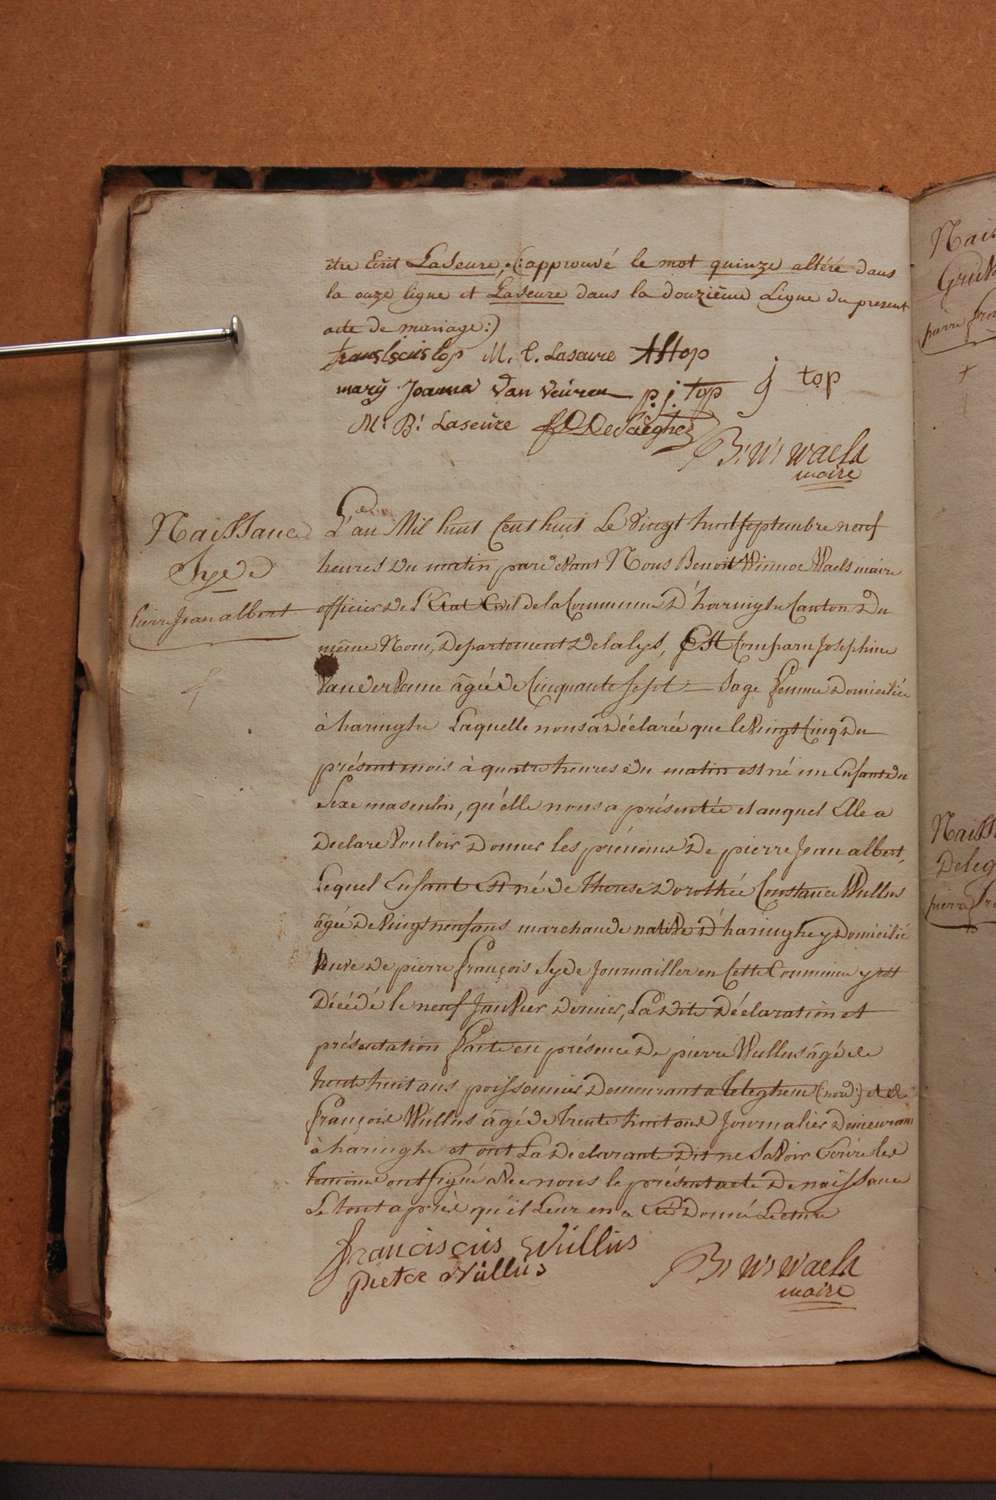 être Ecrit Laseure, (:approuvé le mot quinze altéré dans
la onze ligne et Laseure dans la douzième Ligne du present
acte de mariage:)
franciscus top M. C. Lasaure top
mary Joanna Van Veuren p. j. top j top
M. B. Laseure
B: W: Waels
maire
Naissance
Syede
Pierre Jean albert
L'an Mil huit Cent huit Le Vingt huit septembre neuf
heures du matin par devant Nous Benoit Winnoc Waels maire
officier de l'Etat Civil de la Commune d'haringhe Canton du
même Nom, Departement de la lys, Est Comparu Josephine
VanderPanne âgée de Cinquante sept Sage femme Domiciliée
à haringhe Laquelle nous a Déclarée que le Vingt Cinq du
présent mois à quatre heures du matin est né un Enfant du
Sexe masculin, qu'elle nous a présentée et auquel Elle a
Declare Vouloir Donner les prénoms De pierre Jean albert,
Lequel Enfant Est né de Therese Dorothée Constance Wullus
âgée de Vingt neuf ans marchande native d'haringhe y Domicilié
Veuve De pierre françois Syede Journailler en Cette Commune y est
Décédé le neuf Janvier Dernier, La Dite Déclaration et
présentation faite en présence De pierre Wullus âgé de
trente huit ans poissonnier Demeurant a Releghem (nord:) et de
françois Wullus âgé de trente huit ans Journalier Demeurant
à haringhe et ont La Declarante Dit ne Savoir Ecrire les
temoins ont signé avec nous le présent acte De naissance
Le tout après qu'il Leur en a été Donné Lecture
franciscus Wullus
pieter Wullus
B: W: Waels
maire
Nais
pierre
Naiss
Deleg
pierre fr